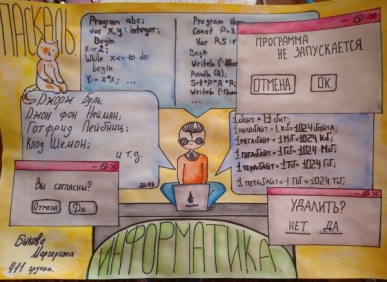 ПАСКАЛЬ
Program abc;
Var x, y: integer;
Begin
x:= 2;
While x<=10 do
begin
Y:= x*x; ...
Program
Const
Var R,S:
Begin
Writeln
Readln (R);
ПРОГРАММА
НЕ ЗАПУСКАЕТСЯ.
ОТМЕНА
OK
Джордж Буль;
Джон фон Нейман;
Готфрид Лейбниц;
Клод Шеннон;
и т.д.
1 байт = 8 бит;
1 килобайт = 1 Кб = 1024 байта;
1 мегабайт = 1 Мб = 1024 Кб;
1 гигабайт = 1 Гб = 1024 Мб;
1 терабайт = 1 Тб = 1024 Гб;
1 петабайт = 1 Пб = 1024 Тб;
Вы согласны?
Отмена
Да
УДАЛИТЬ?
НЕТ
ДА
ИНФОРМАТИКА.
Быкова
Маргарита
411 группа.